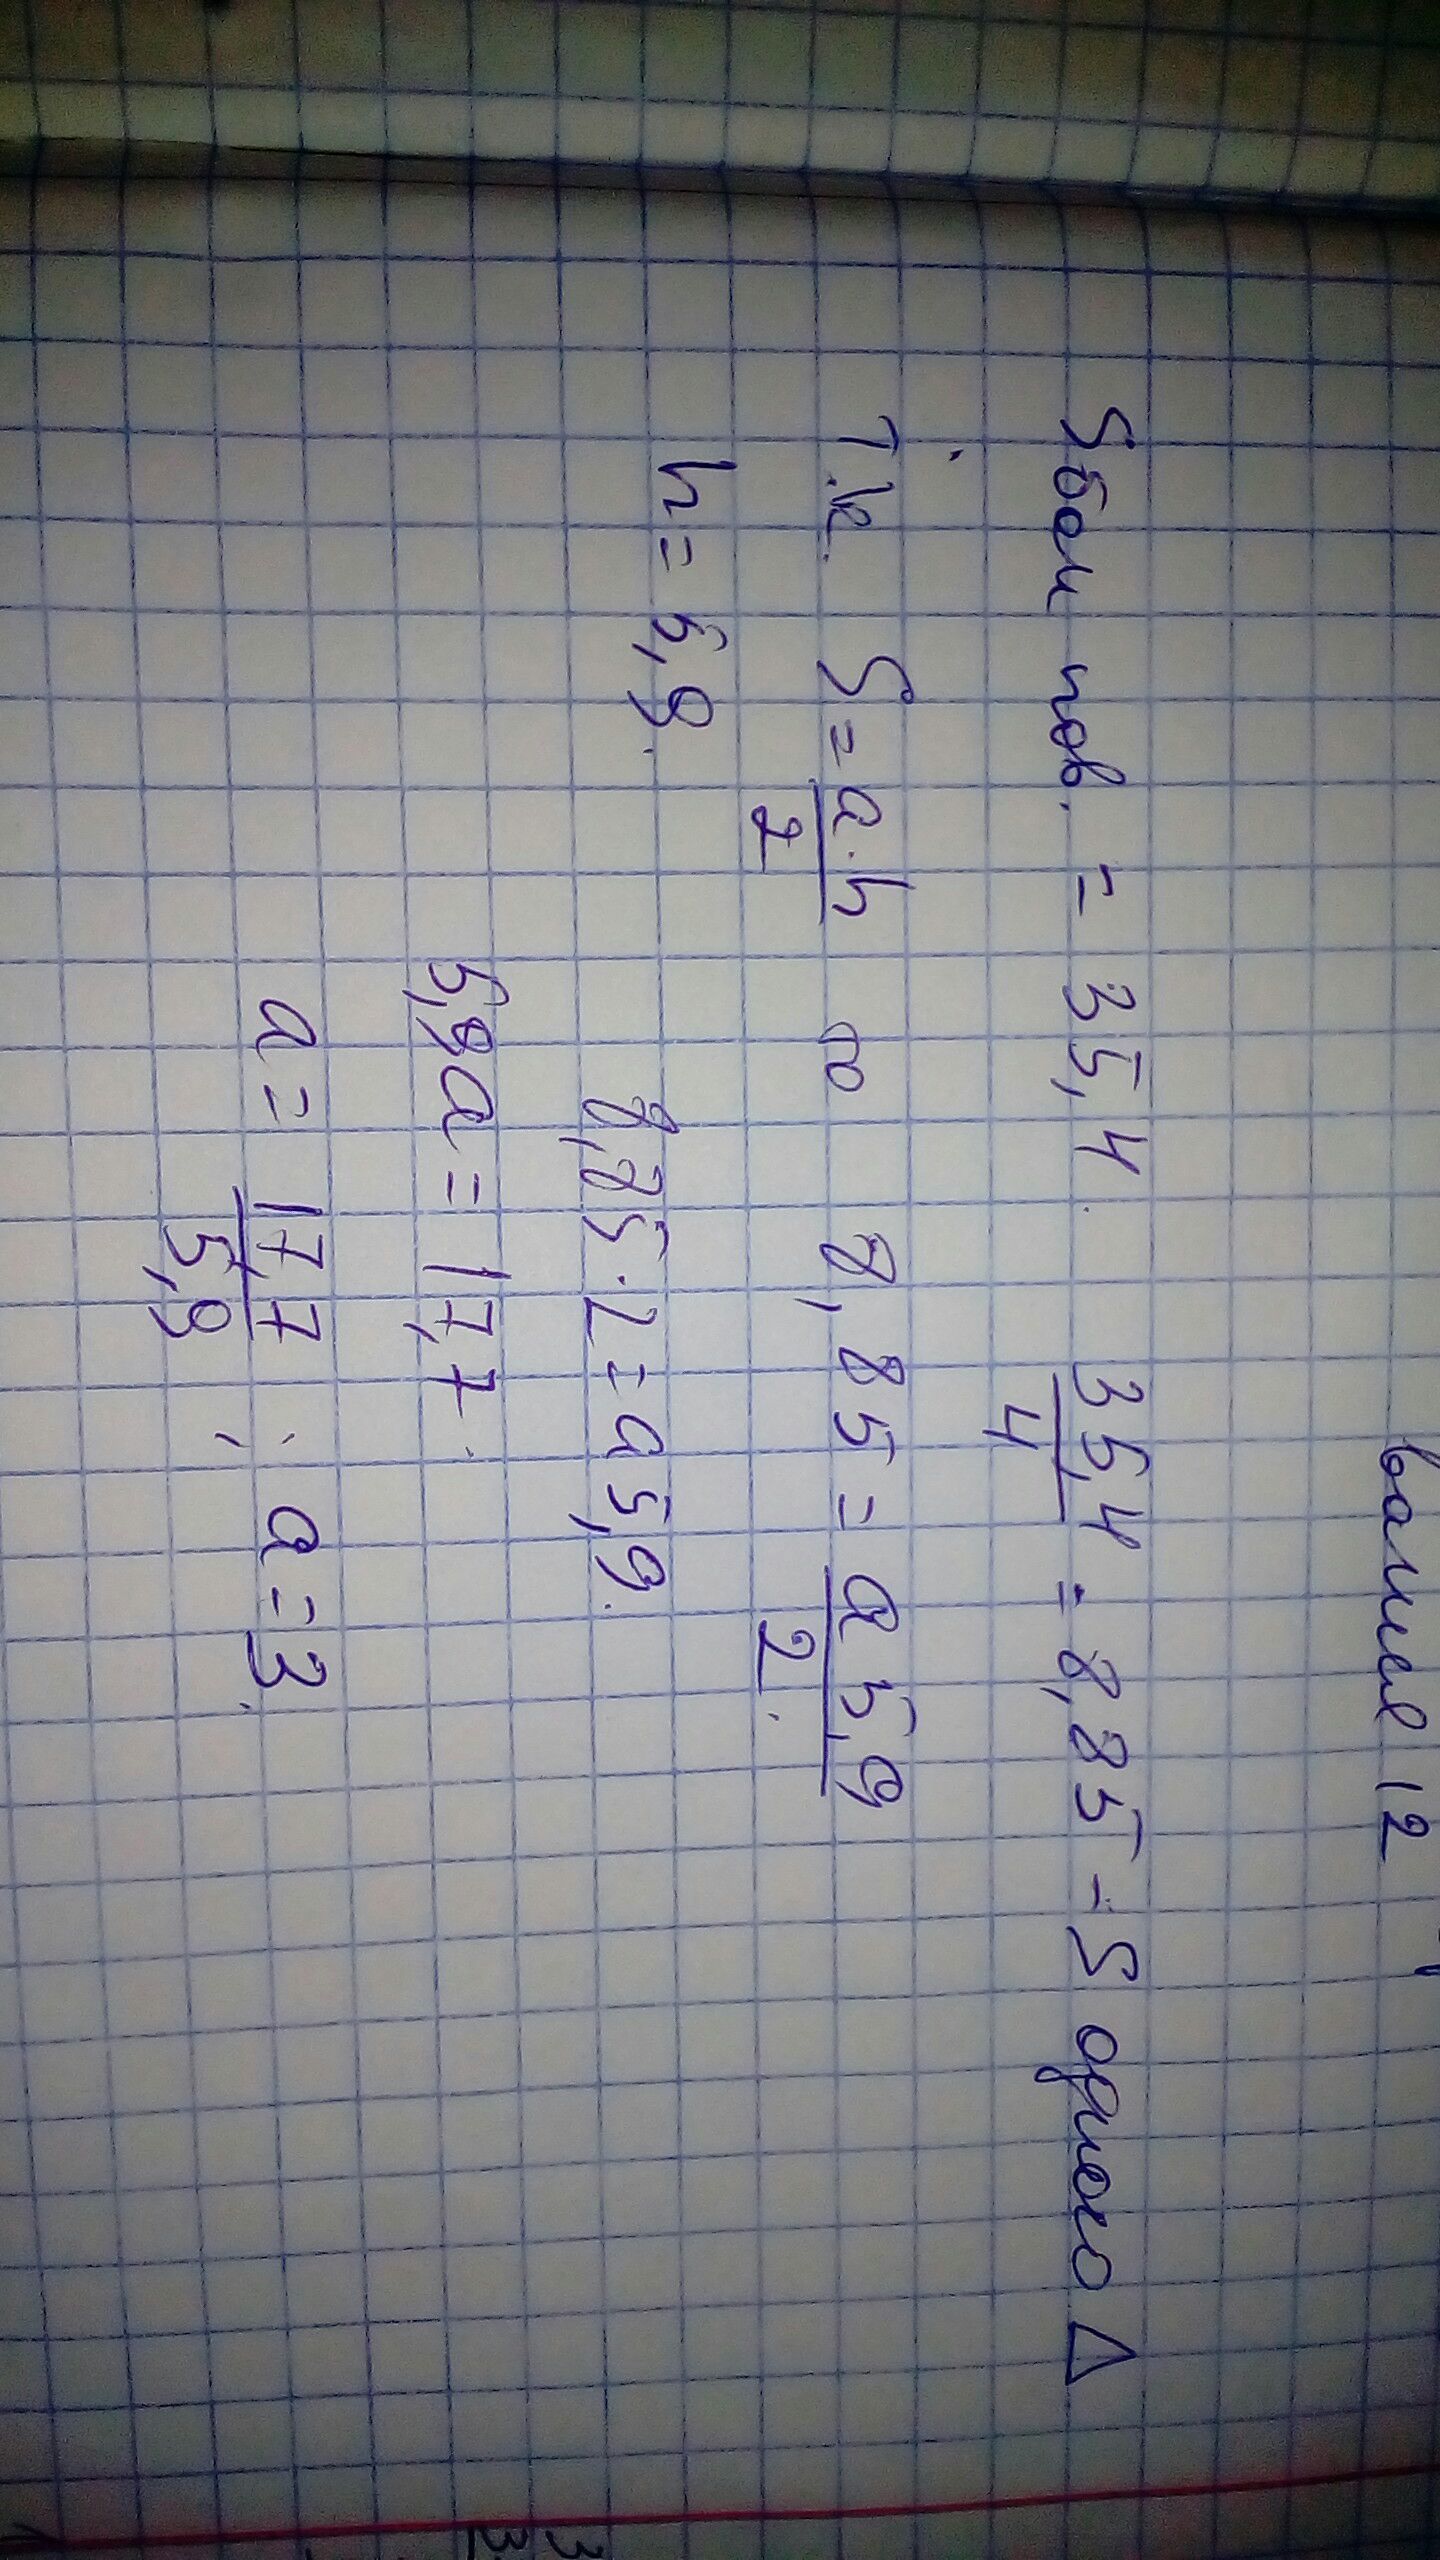 вания 12
Sбок пов. = 35,4. 35,4/4 = 8,85 - S одного Δ
Т.к. S = a·h/2 то 8,85 = a 5,9/2.
h = 5,9.
8,85·2 = a 5,9.
5,9a = 17,7.
a = 17,7/5,9; a = 3.